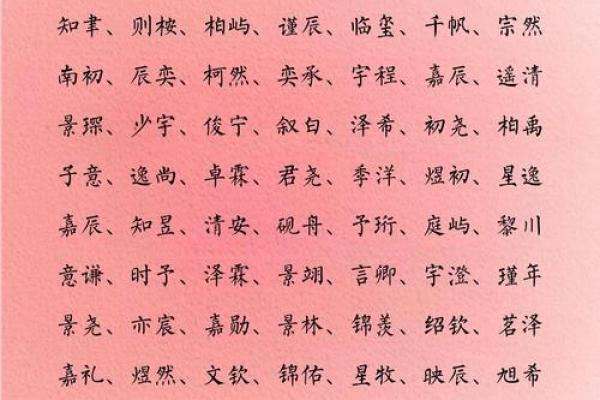 知聿、则桉、柏屿、谨辰、临玺、千帆、宗然
南初、辰奕、柯然、奕承、宇程、嘉辰、遥清
景琛、少宇、俊宁、叙白、泽希、初尧、柏禹
子意、逸尚、卓霖、君尧、季洋、煜初、星逸
嘉辰、知昱、清安、砚舟、予珩、庭屿、黎川
意谦、时予、泽霖、景翊、言卿、宇澄、瑾年
景尧、亦宸、嘉勋、景林、锦羡、绍钦、茗泽
嘉礼、煜然、文钦、锦佑、星牧、映辰、旭希